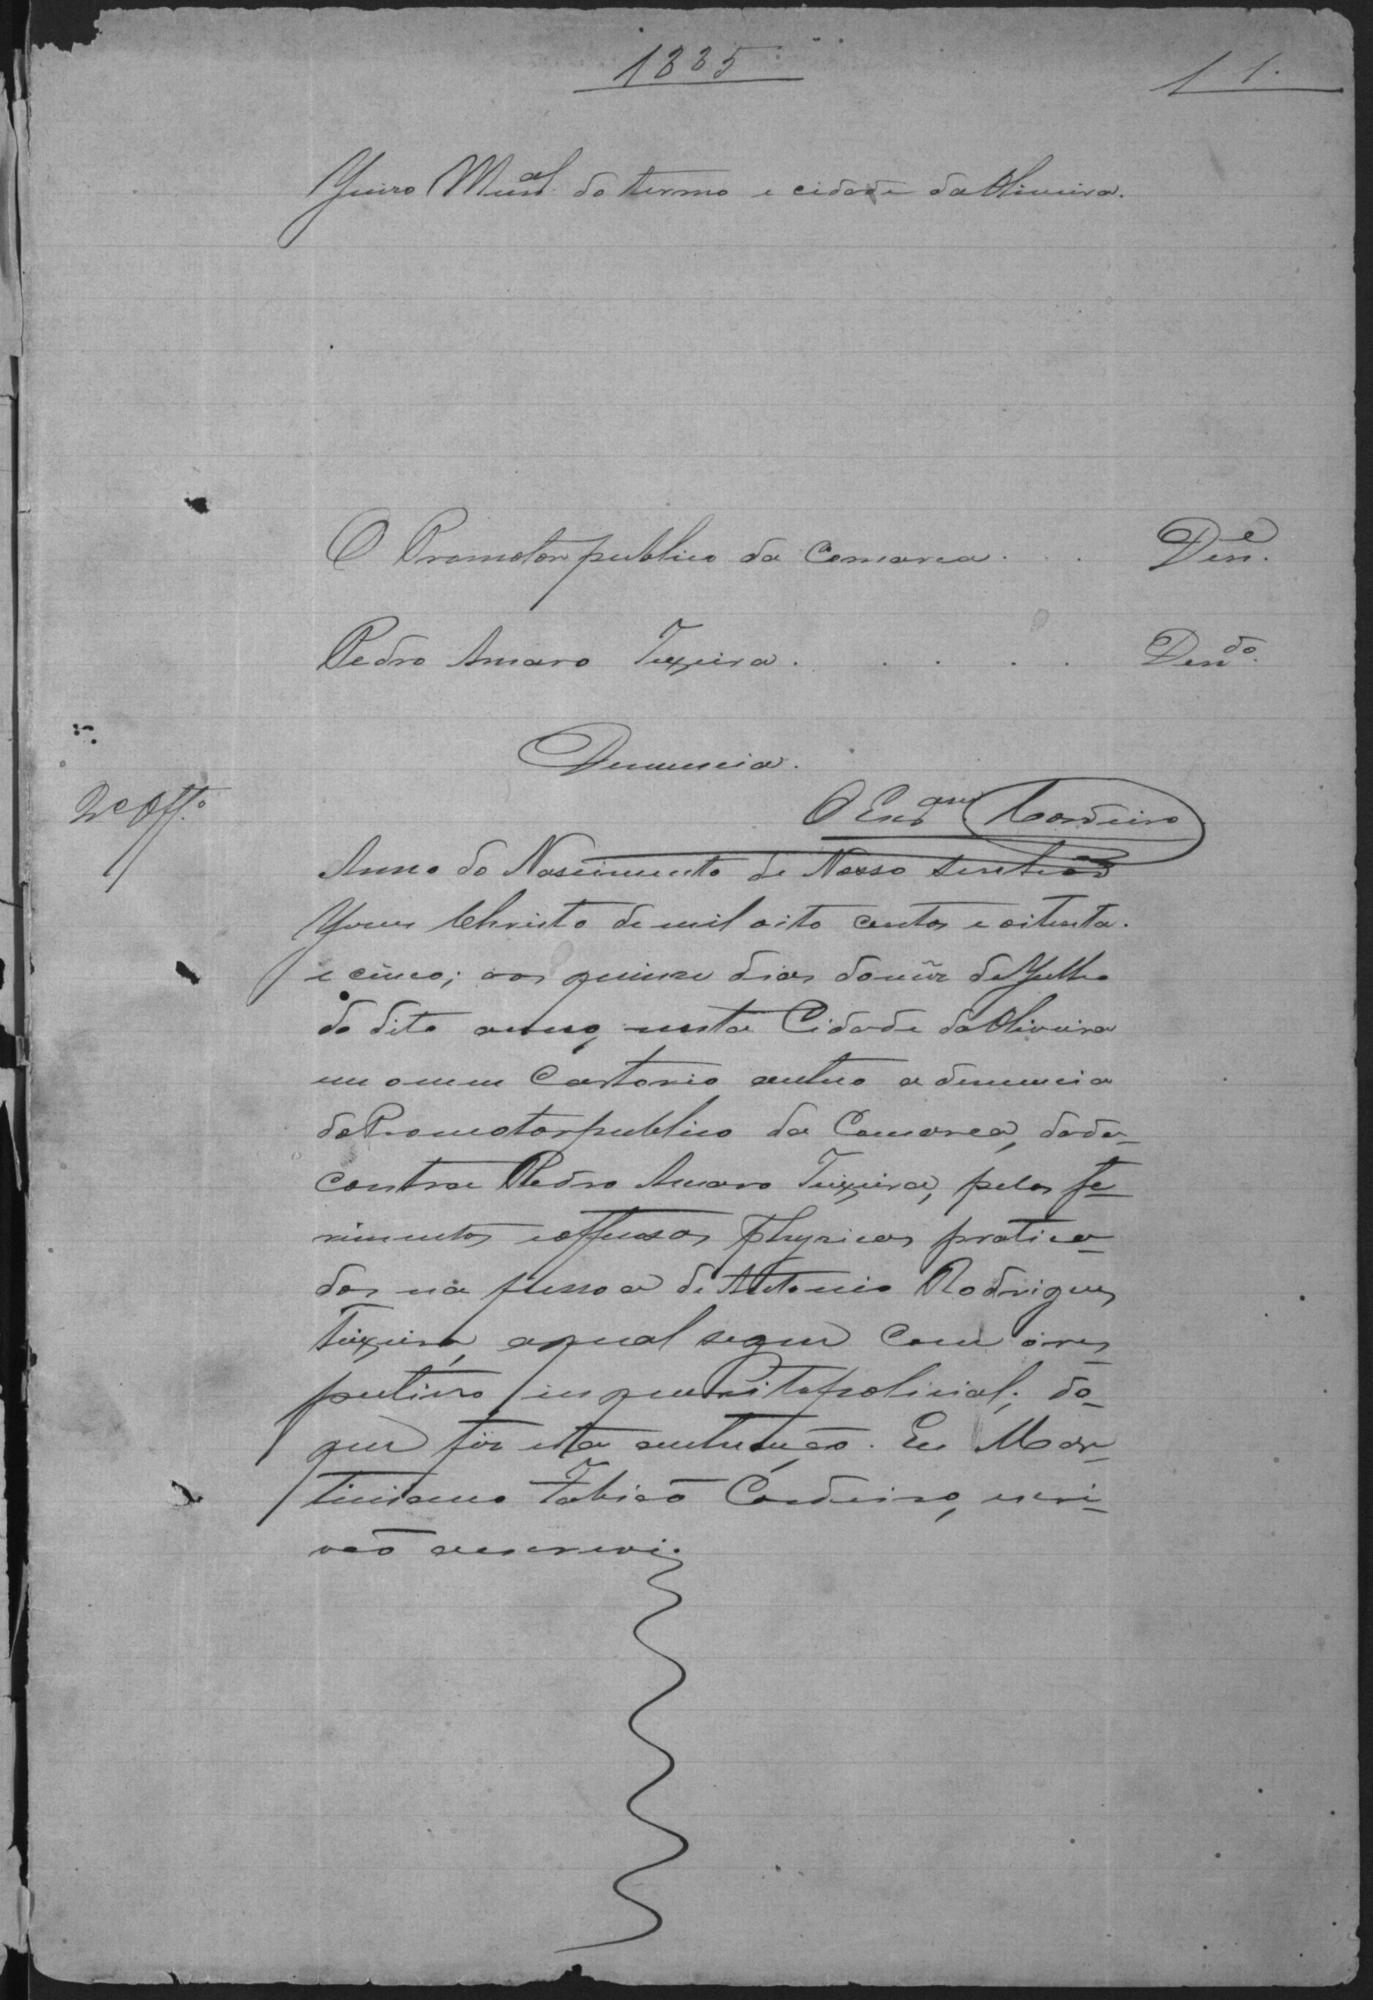 1885
1 1.
Juizo Mun.al do termo e cidade da Oliveira.
O Promotor publico da Comarca . . Den.e
Pedro Amaro Teixeira . . . . Den.do
Denuncia.
O Escr.am Cordeiro
2º Off.º
Anno do Nascimento de Nosso Senhor
Jesus Christo de mil oito centos e oitenta
e cinco; aos quinze dias do mez de Julho
do dito anno, nesta Cidade da Oliveira
em o meu Cartorio autuo a denuncia
do Promotor publico da Comarca, dada
contra Pedro Amaro Teixeira, pelos fe-
rimentos e offensas physicas pratica-
dos na pessoa de Antonio Rodrigues
Teixeira, a qual segue com o res-
pectivo inquerito policial; do-
que fiz esta autuação. Eu Mar-
tiniano Fabião Cordeiro, escri-
vão a escrevi.